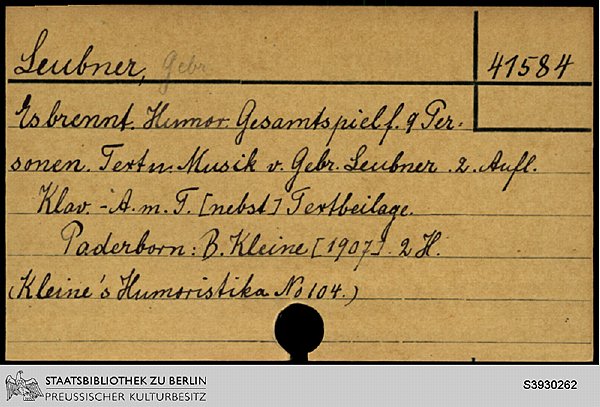 Leubner, Gebr.
41584
Es brennt. Humor. Gesamtspiel f. 9 Per-
sonen. Text u. Musik v. Gebr. Leubner. 2. Aufl.
Klav.-A. m. T. [nebst] Textbeilage.
Paderborn: B. Kleine [1907]. 2 H.
(Kleine's Humoristika No 104.)
STAATSBIBLIOTHEK ZU BERLIN
PREUSSISCHER KULTURBESITZ
S3930262